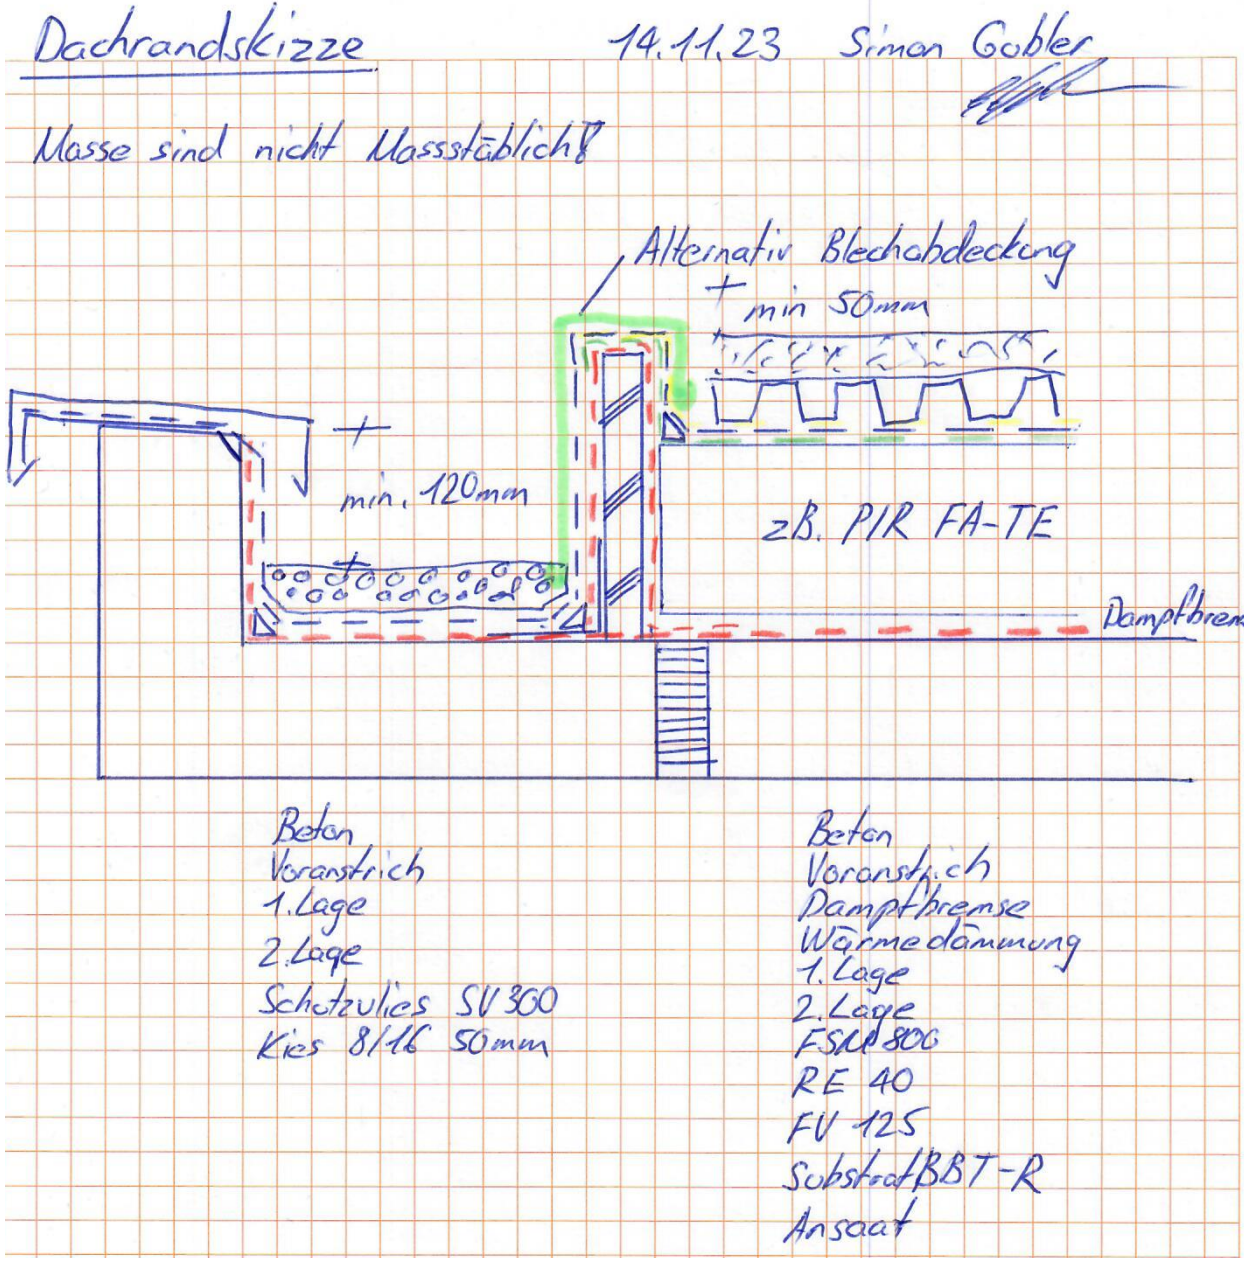 Dachrandskizze 14.11.23 Simon Gubler
Masse sind nicht Massstäblich!
Alternativ Blechabdeckung
min 50mm
min. 120mm
zB. PIR FA-TE
Dampfbrem
Beton
Voranstrich
1. Lage
2. Lage
Schutzvlies SV 300
Kies 8/16 50mm
Beton
Voranstrich
Dampfbremse
Wärmedämmung
1. Lage
2. Lage
FSM 800
RE 40
FV 125
Substrat BBT-R
Ansaat